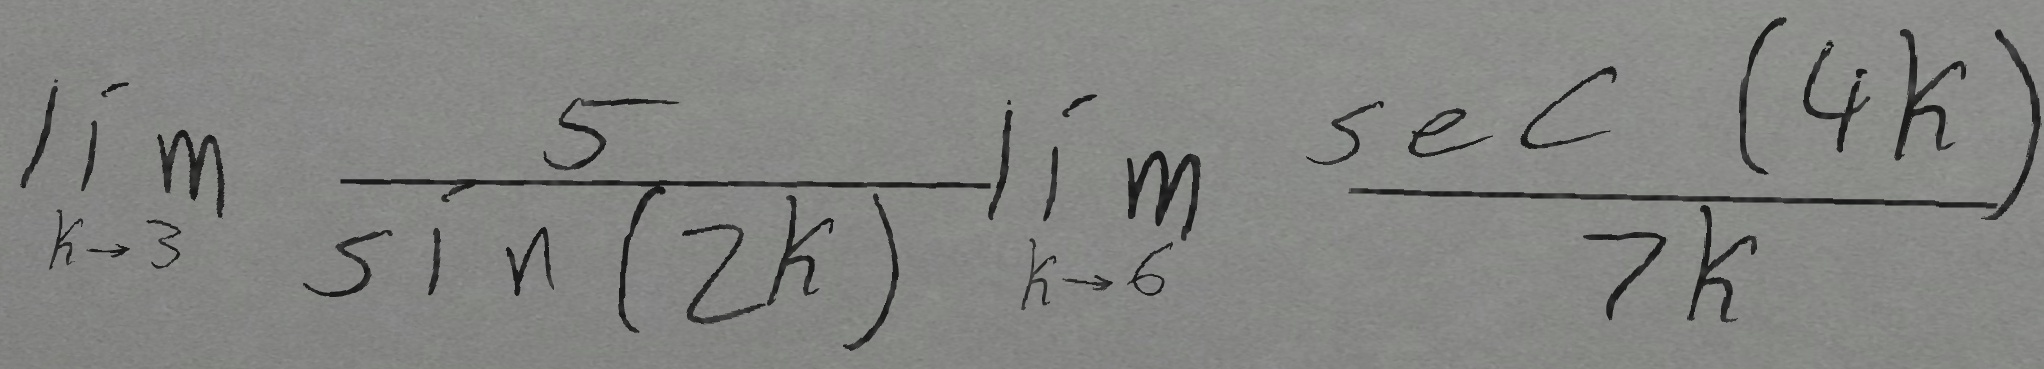 \lim_{k \to 3} \frac{5}{\sin(2k)} \lim_{k \to 6} \frac{\sec(4k)}{7k}